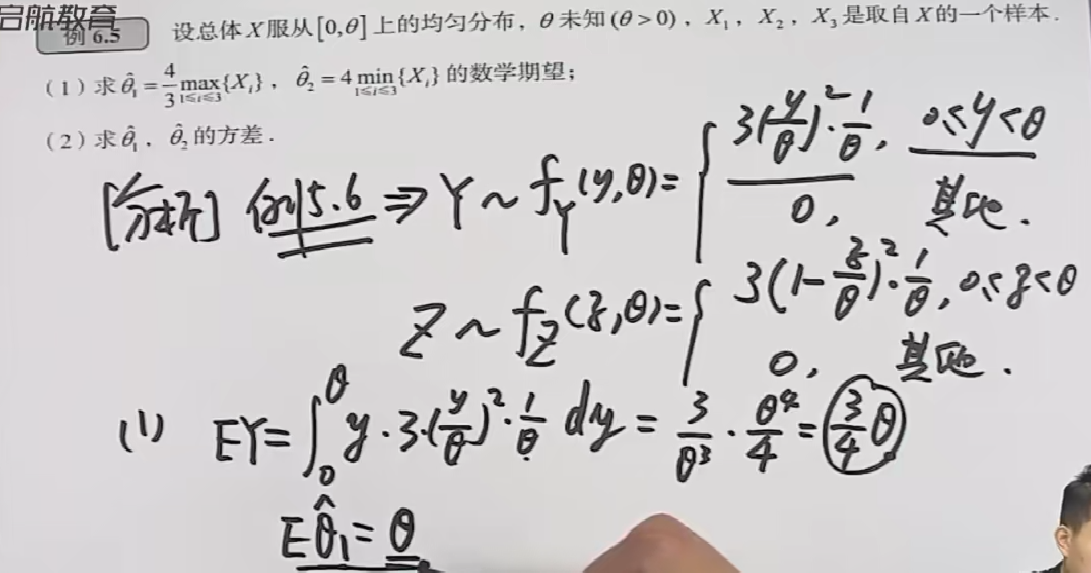 启航教育
例 6.5 设总体 X 服从 [0,θ] 上的均匀分布，θ 未知 (θ > 0)，X₁，X₂，X₃ 是取自 X 的一个样本.
(1) 求 θ̂₁ = 4/3 max_{1≤i≤3}{X_i}，θ̂₂ = 4 min_{1≤i≤3}{X_i} 的数学期望；
(2) 求 θ̂₁，θ̂₂ 的方差.
[分析] 例5.6 ⇒ Y ~ f_Y(y,θ) = { 3(y/θ)²·1/θ, 0≤y<θ
0, 其他.
Z ~ f_Z(z,θ) = { 3(1-z/θ)²·1/θ, 0≤z<θ
0, 其他.
(1) EY = ∫₀^θ y·3·(y/θ)²·1/θ dy = 3/θ³ · θ⁴/4 = 3/4 θ
Eθ̂₁ = θ.